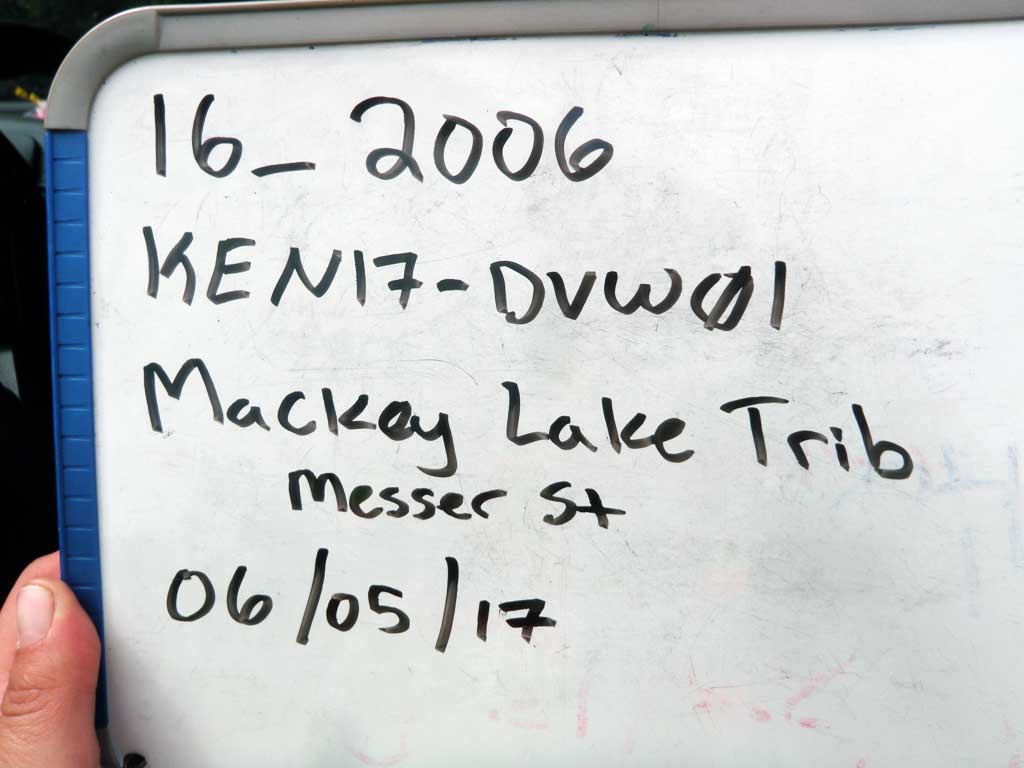 16_2006
KEN17-DVWØ1
Mackay Lake Trib
Messer St
06/05/17